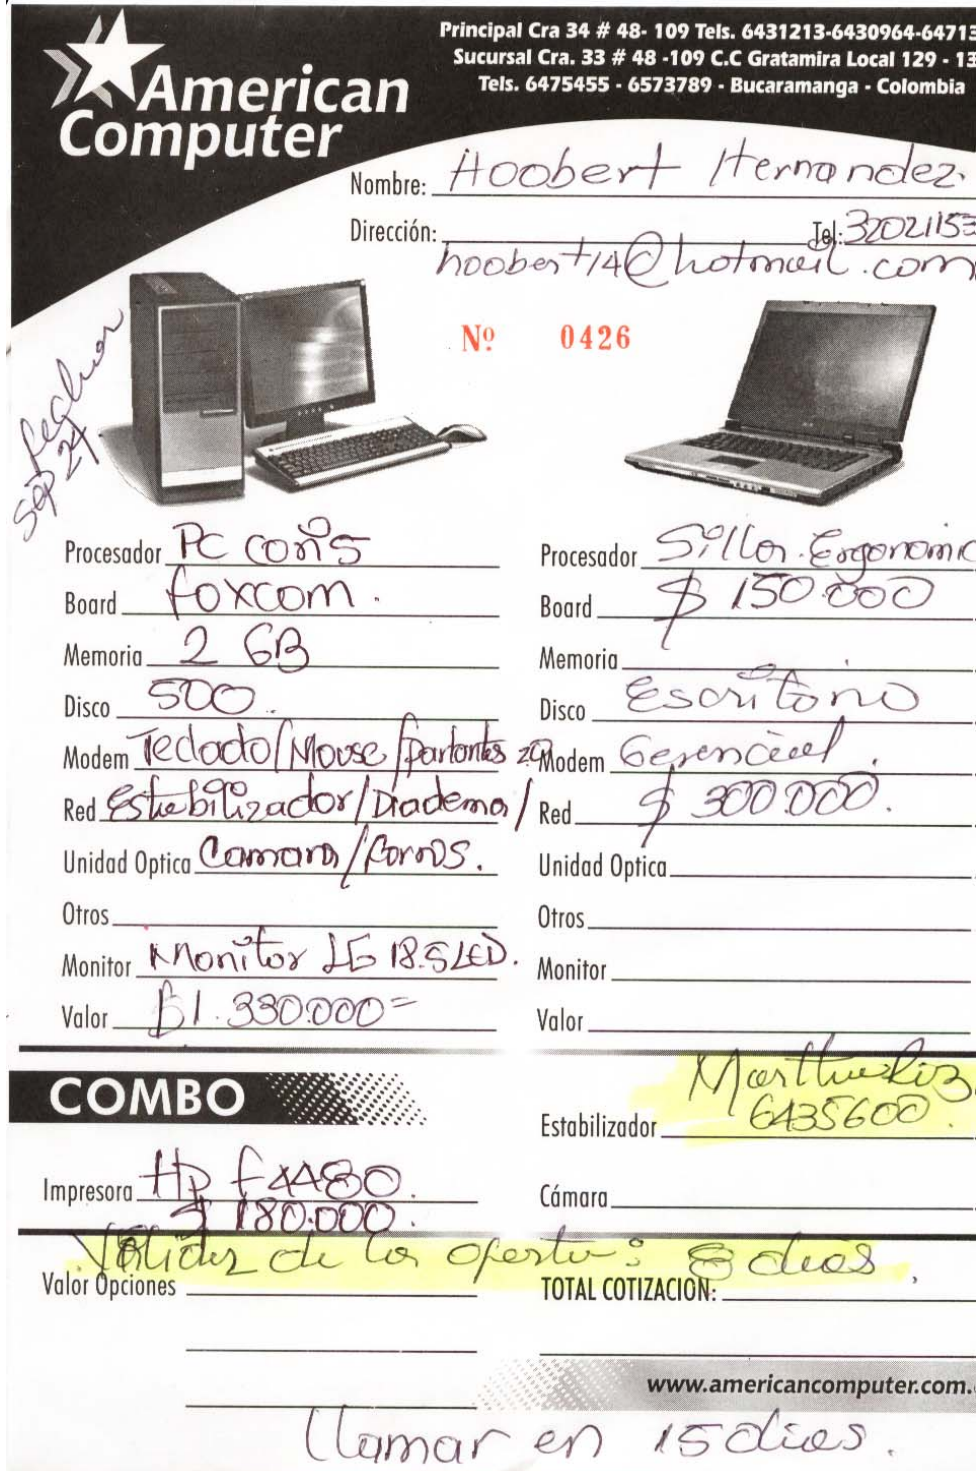 Principal Cra 34 # 48- 109 Tels. 6431213-6430964-64713
Sucursal Cra. 33 # 48 -109 C.C Gratamira Local 129 - 13
Tels. 6475455 - 6573789 - Bucaramanga - Colombia
American
Computer
Nombre: Hoobert Hernandez.
Dirección: Tel: 32021153
hoobert14@hotmail.com
Nº 0426
Sep 24
Procesador PC
Board foxcom.
Memoria 2 GB
Disco 500.
Modem Teclado/Mouse/parlantes
Red Estabilizador/Diadema/
Unidad Optica Camara/forros.
Otros
Monitor Monitor LG 18.5 LED.
Valor $1.330.000=
Procesador Silla Ergonomic
Board $ 150.000
Memoria
Disco Escritorio
Modem Gerencial.
Red $ 300.000.
Unidad Optica
Otros
Monitor
Valor
COMBO
Martha Liz
Estabilizador 6435600.
Impresora Hp F4480.
$ 180.000.
Cámara
Validez de la oferta: 8 dias.
Valor Opciones
TOTAL COTIZACION:
www.americancomputer.com.
Llamar en 15 dias.